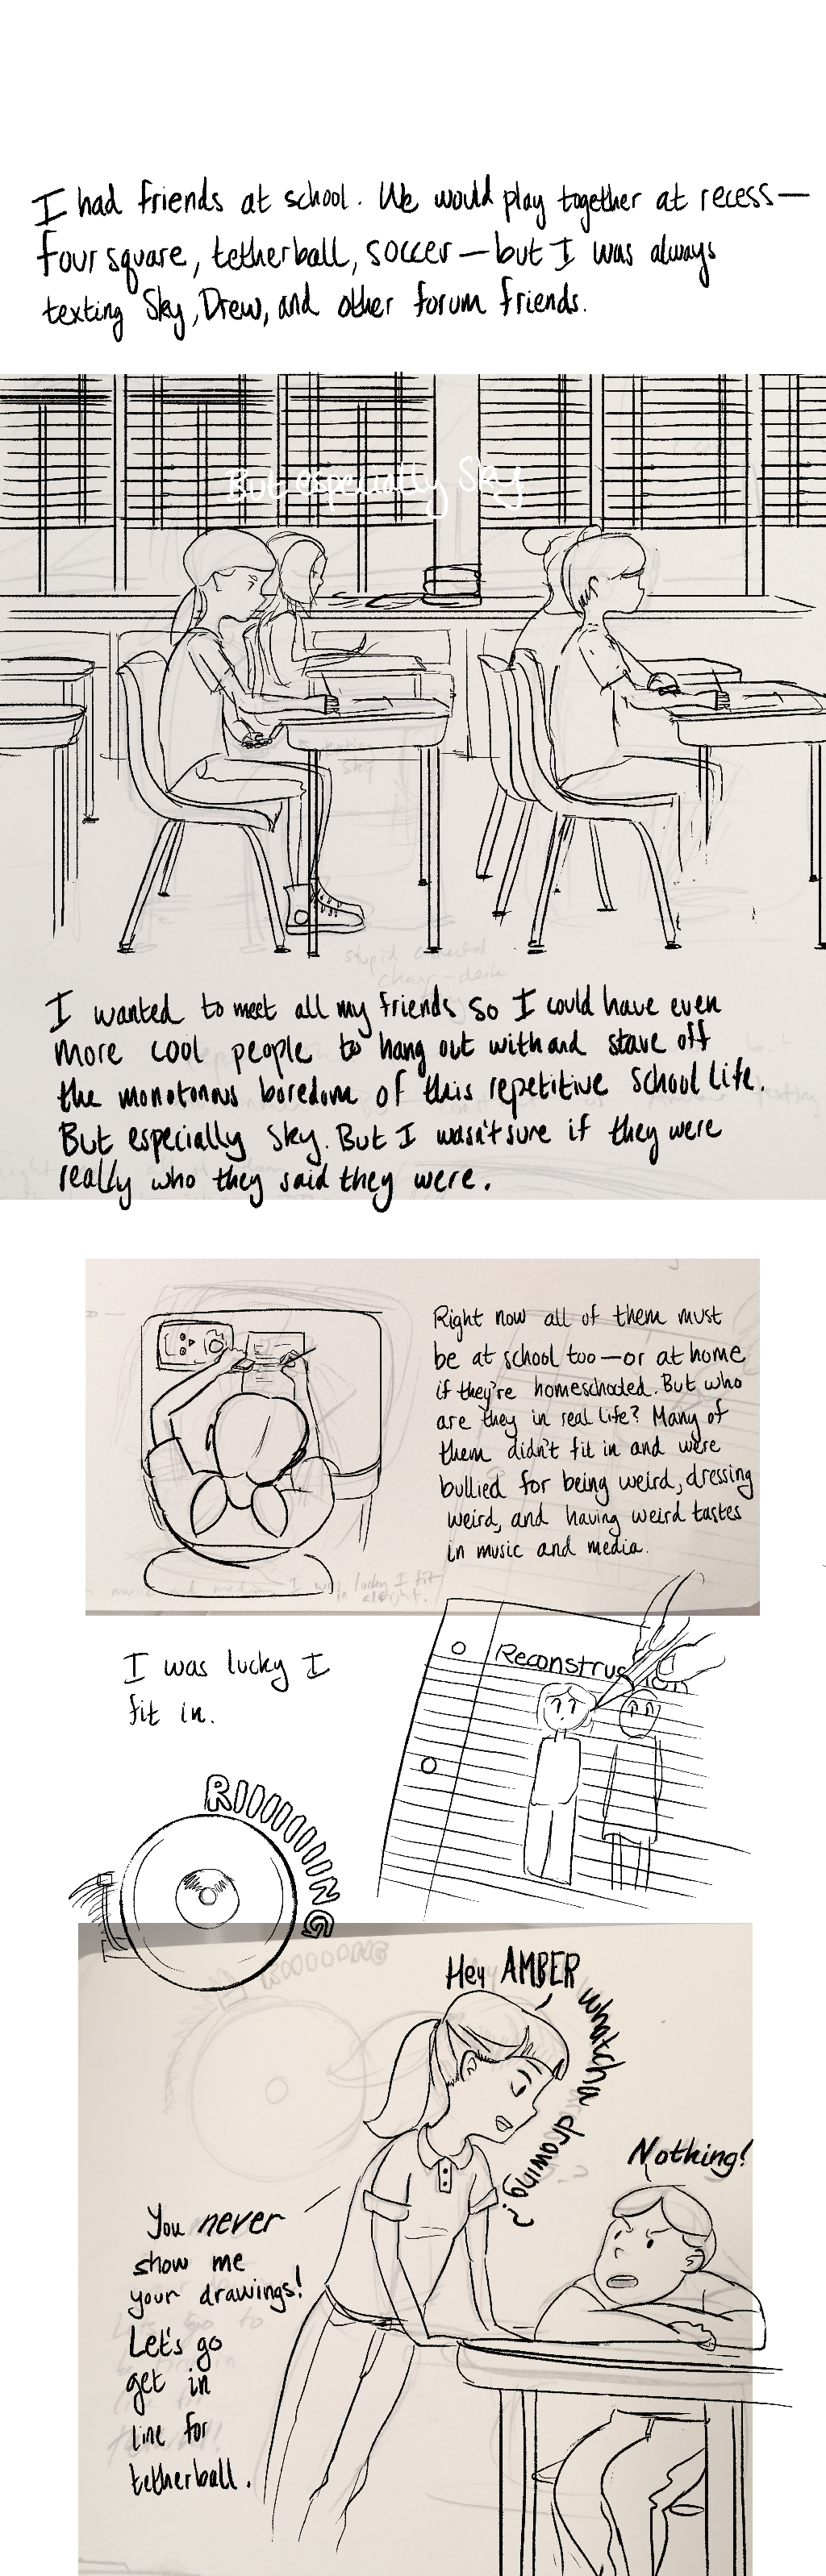 I had friends at school. We would play together at recess—
four square, tetherball, soccer—but I was always
texting Sky, Drew, and other forum friends.
But especially Sky
Sky
stupid connected
chair-desk
I wanted to meet all my friends so I could have even
more cool people to hang out with and stave off
the monotonous boredom of this repetitive school life.
But especially Sky. But I wasn't sure if they were
really who they said they were.
Right now all of them must
be at school too—or at home
if they're homeschooled. But who
are they in real life? Many of
them didn't fit in and were
bullied for being weird, dressing
weird, and having weird tastes
in music and media.
I was lucky I
fit in.
Reconstruction
RIIIIIIIIING
Hey AMBER
whatcha drawing?
Nothing!
You never
show me
your drawings!
Let's go
get in
line for
tetherball.